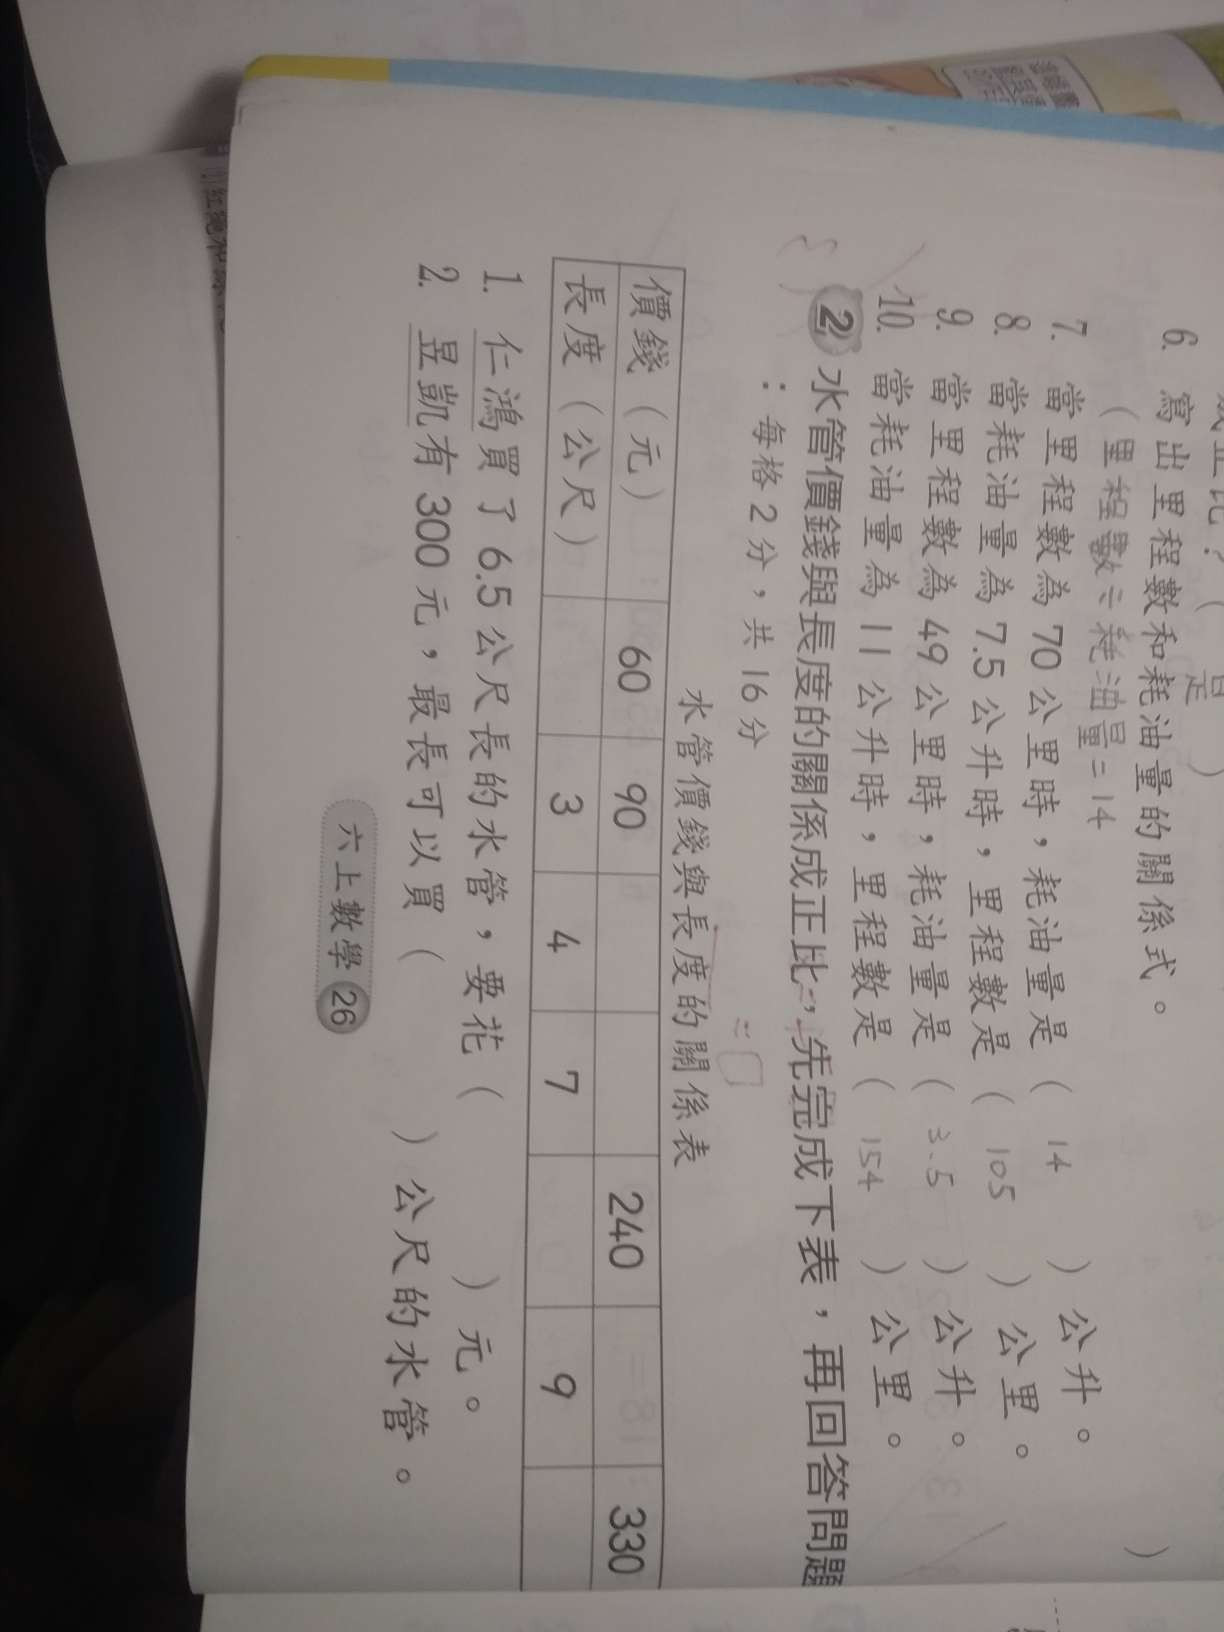 是
6. 寫出里程數和耗油量的關係式。
（里程數÷耗油量=14 ）
7. 當里程數為 70 公里時，耗油量是（ 14 ）公升。
8. 當耗油量為 7.5 公升時，里程數是（ 105 ）公里。
9. 當里程數為 49 公里時，耗油量是（ 3.5 ）公升。
10. 當耗油量為 11 公升時，里程數是（ 154 ）公里。
2 水管價錢與長度的關係成正比，先完成下表，再回答問題
：每格 2 分，共 16 分
水管價錢與長度的關係表
價錢（元） 60 90 240 330
長度（公尺） 3 4 7 9
1. 仁鴻買了 6.5 公尺長的水管，要花（ ）元。
2. 昱凱有 300 元，最長可以買（ ）公尺的水管。
六上數學 26